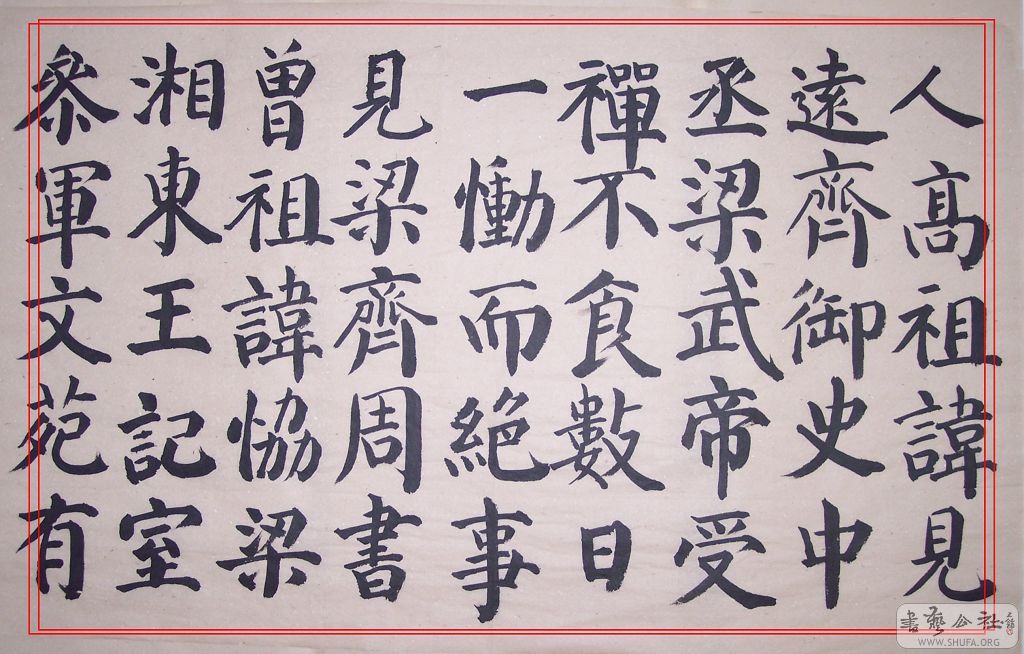 人高祖諱見
遠齊御史中
丞梁武帝受
禪不食數日
一慟而絕事
見梁齊周書
曾祖諱恊梁
湘東王記室
參軍文苑有
書藝公社
WWW.SHUFA.ORG